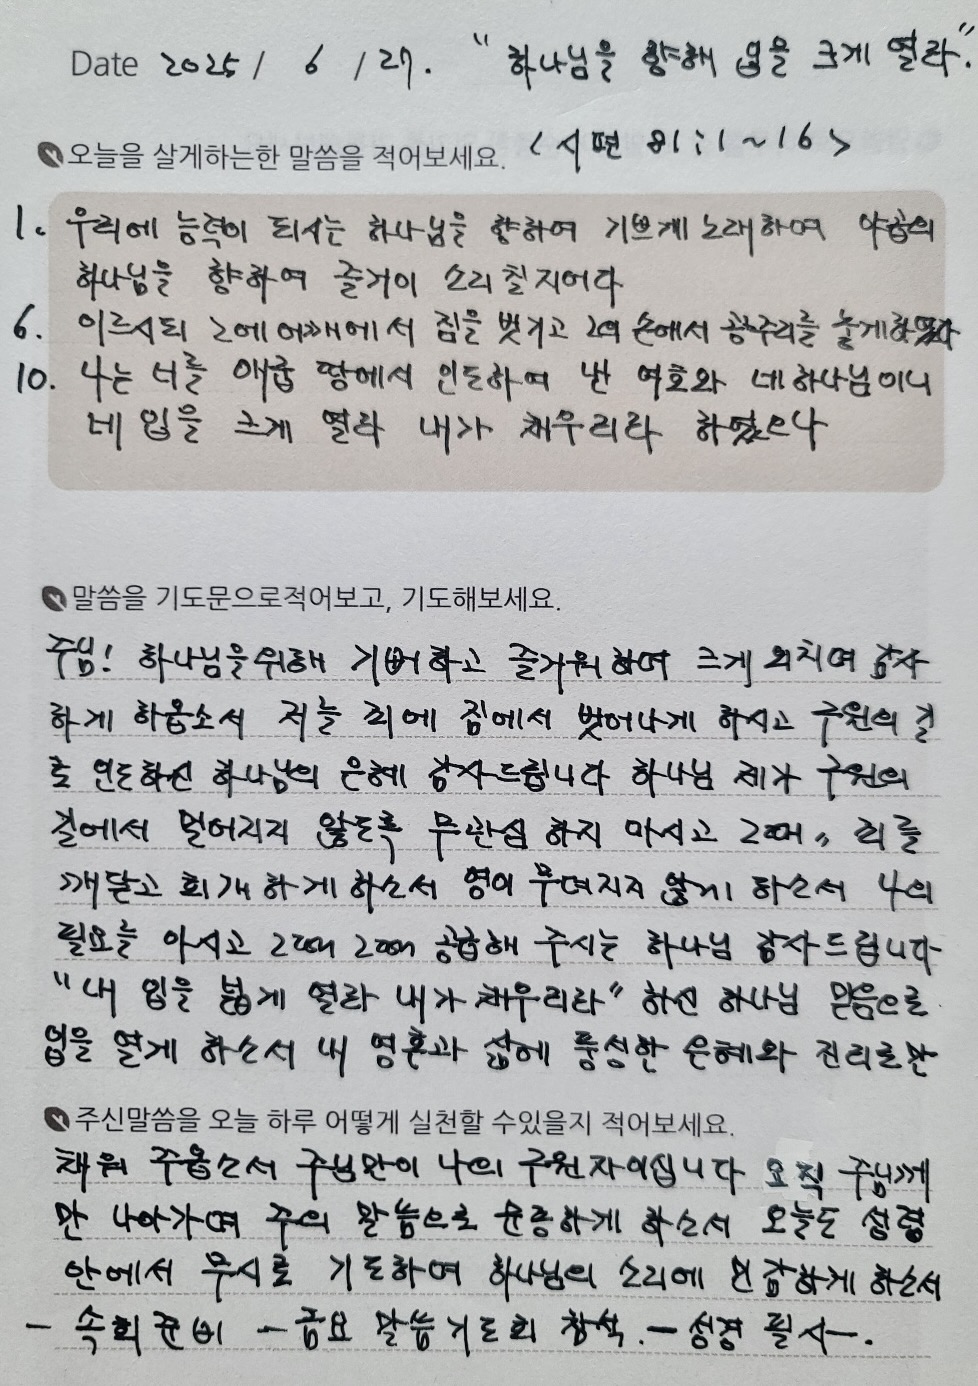 Date 2025 / 6 / 27. "하나님을 향해 입을 크게 열라."
오늘을 살게하는한 말씀을 적어보세요. <시편 81:1~16>
1. 우리에 능력이 되시는 하나님을 향하여 기쁘게 노래하여 야곱의
하나님을 향하여 즐거이 소리칠지어다
6. 이르시되 그에 어깨에서 짐을 벗기고 그의 손에서 광주리를 놓게하였다
10. 나는 너를 애굽 땅에서 인도하여 낸 여호와 네 하나님이니
네 입을 크게 열라 내가 채우리라 하였으나
말씀을 기도문으로적어보고, 기도해보세요.
주님! 하나님을위해 기뻐하고 즐거워하며 크게 외치며 감사
하게 하옵소서 저늘 죄에 짐에서 벗어나게 하시고 구원의 길
로 인도하신 하나님의 은혜 감사드립니다 하나님 제가 구원의
길에서 멀어지지 않도록 무관심 하지 마시고 그때〃 죄를
깨닫고 회개하게하소서 영이 무뎌지지 않게 하소서 나의
필요늘 아시고 그때 그때 공급해 주시는 하나님 감사드립니다
"내 입을 넓게 열라 내가 채우리라" 하신 하나님 믿음으로
입을 열게 하소서 내 영혼과 삶에 풍성한 은혜와 진리로만
주신말씀을 오늘 하루 어떻게 실천할 수있을지 적어보세요.
채워 주옵소서 주님만이 나의 구원자이십니다 오직 주님께
만 나아가며 주의 말씀으로 순종하게 하소서 오늘도 성령
안에서 무시로 기도하여 하나님의 소리에 민감하게 하소서
- 속회준비 - 금요 말씀기도회 참석. - 성경 필사-.